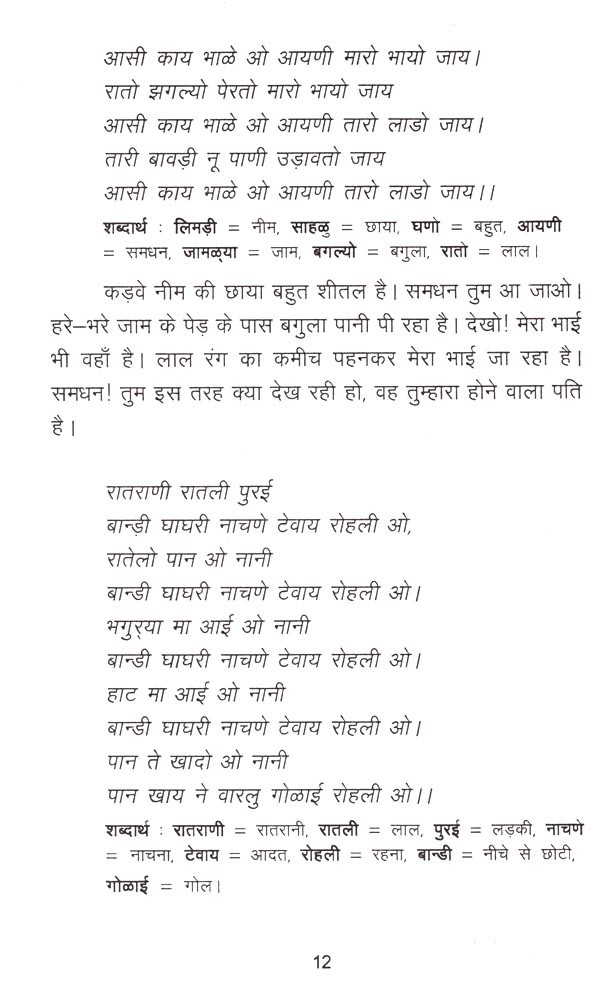 आसी काय भाळे ओ आयणी मारो भायो जाय।
रातो झगल्यो पेरतो मारो भायो जाय
आसी काय भाळे ओ आयणी तारो लाडो जाय।
तारी बावड़ी नू पाणी उड़ावतो जाय
आसी काय भाळे ओ आयणी तारो लाडो जाय।।
शब्दार्थ : लिमड़ी = नीम, साहळु = छाया, घणो = बहुत, आयणी
= समधन, जामळ्या = जाम, बगल्यो = बगुला, रातो = लाल।
कड़वे नीम की छाया बहुत शीतल है। समधन तुम आ जाओ।
हरे–भरे जाम के पेड़ के पास बगुला पानी पी रहा है। देखो! मेरा भाई
भी वहाँ है। लाल रंग का कमीच पहनकर मेरा भाई जा रहा है।
समधन! तुम इस तरह क्या देख रही हो, वह तुम्हारा होने वाला पति
है।
रातराणी रातली पुरई
बान्ड़ी घाघरी नाचणे टेवाय रोहली ओ,
रातेलो पान ओ नानी
बान्डी घाघरी नाचणे टेवाय रोहली ओ।
भगुर्‌या मा आई ओ नानी
बान्डी घाघरी नाचणे टेवाय रोहली ओ।
हाट मा आई ओ नानी
बान्डी घाघरी नाचणे टेवाय रोहली ओ।
पान ते खादो ओ नानी
पान खाय ने वारलु गोळाई रोहली ओ।।
शब्दार्थ : रातराणी = रातरानी, रातली = लाल, पुरई = लड़की, नाचणे
= नाचना, टेवाय = आदत, रोहली = रहना, बान्डी = नीचे से छोटी,
गोळाई = गोल।
12